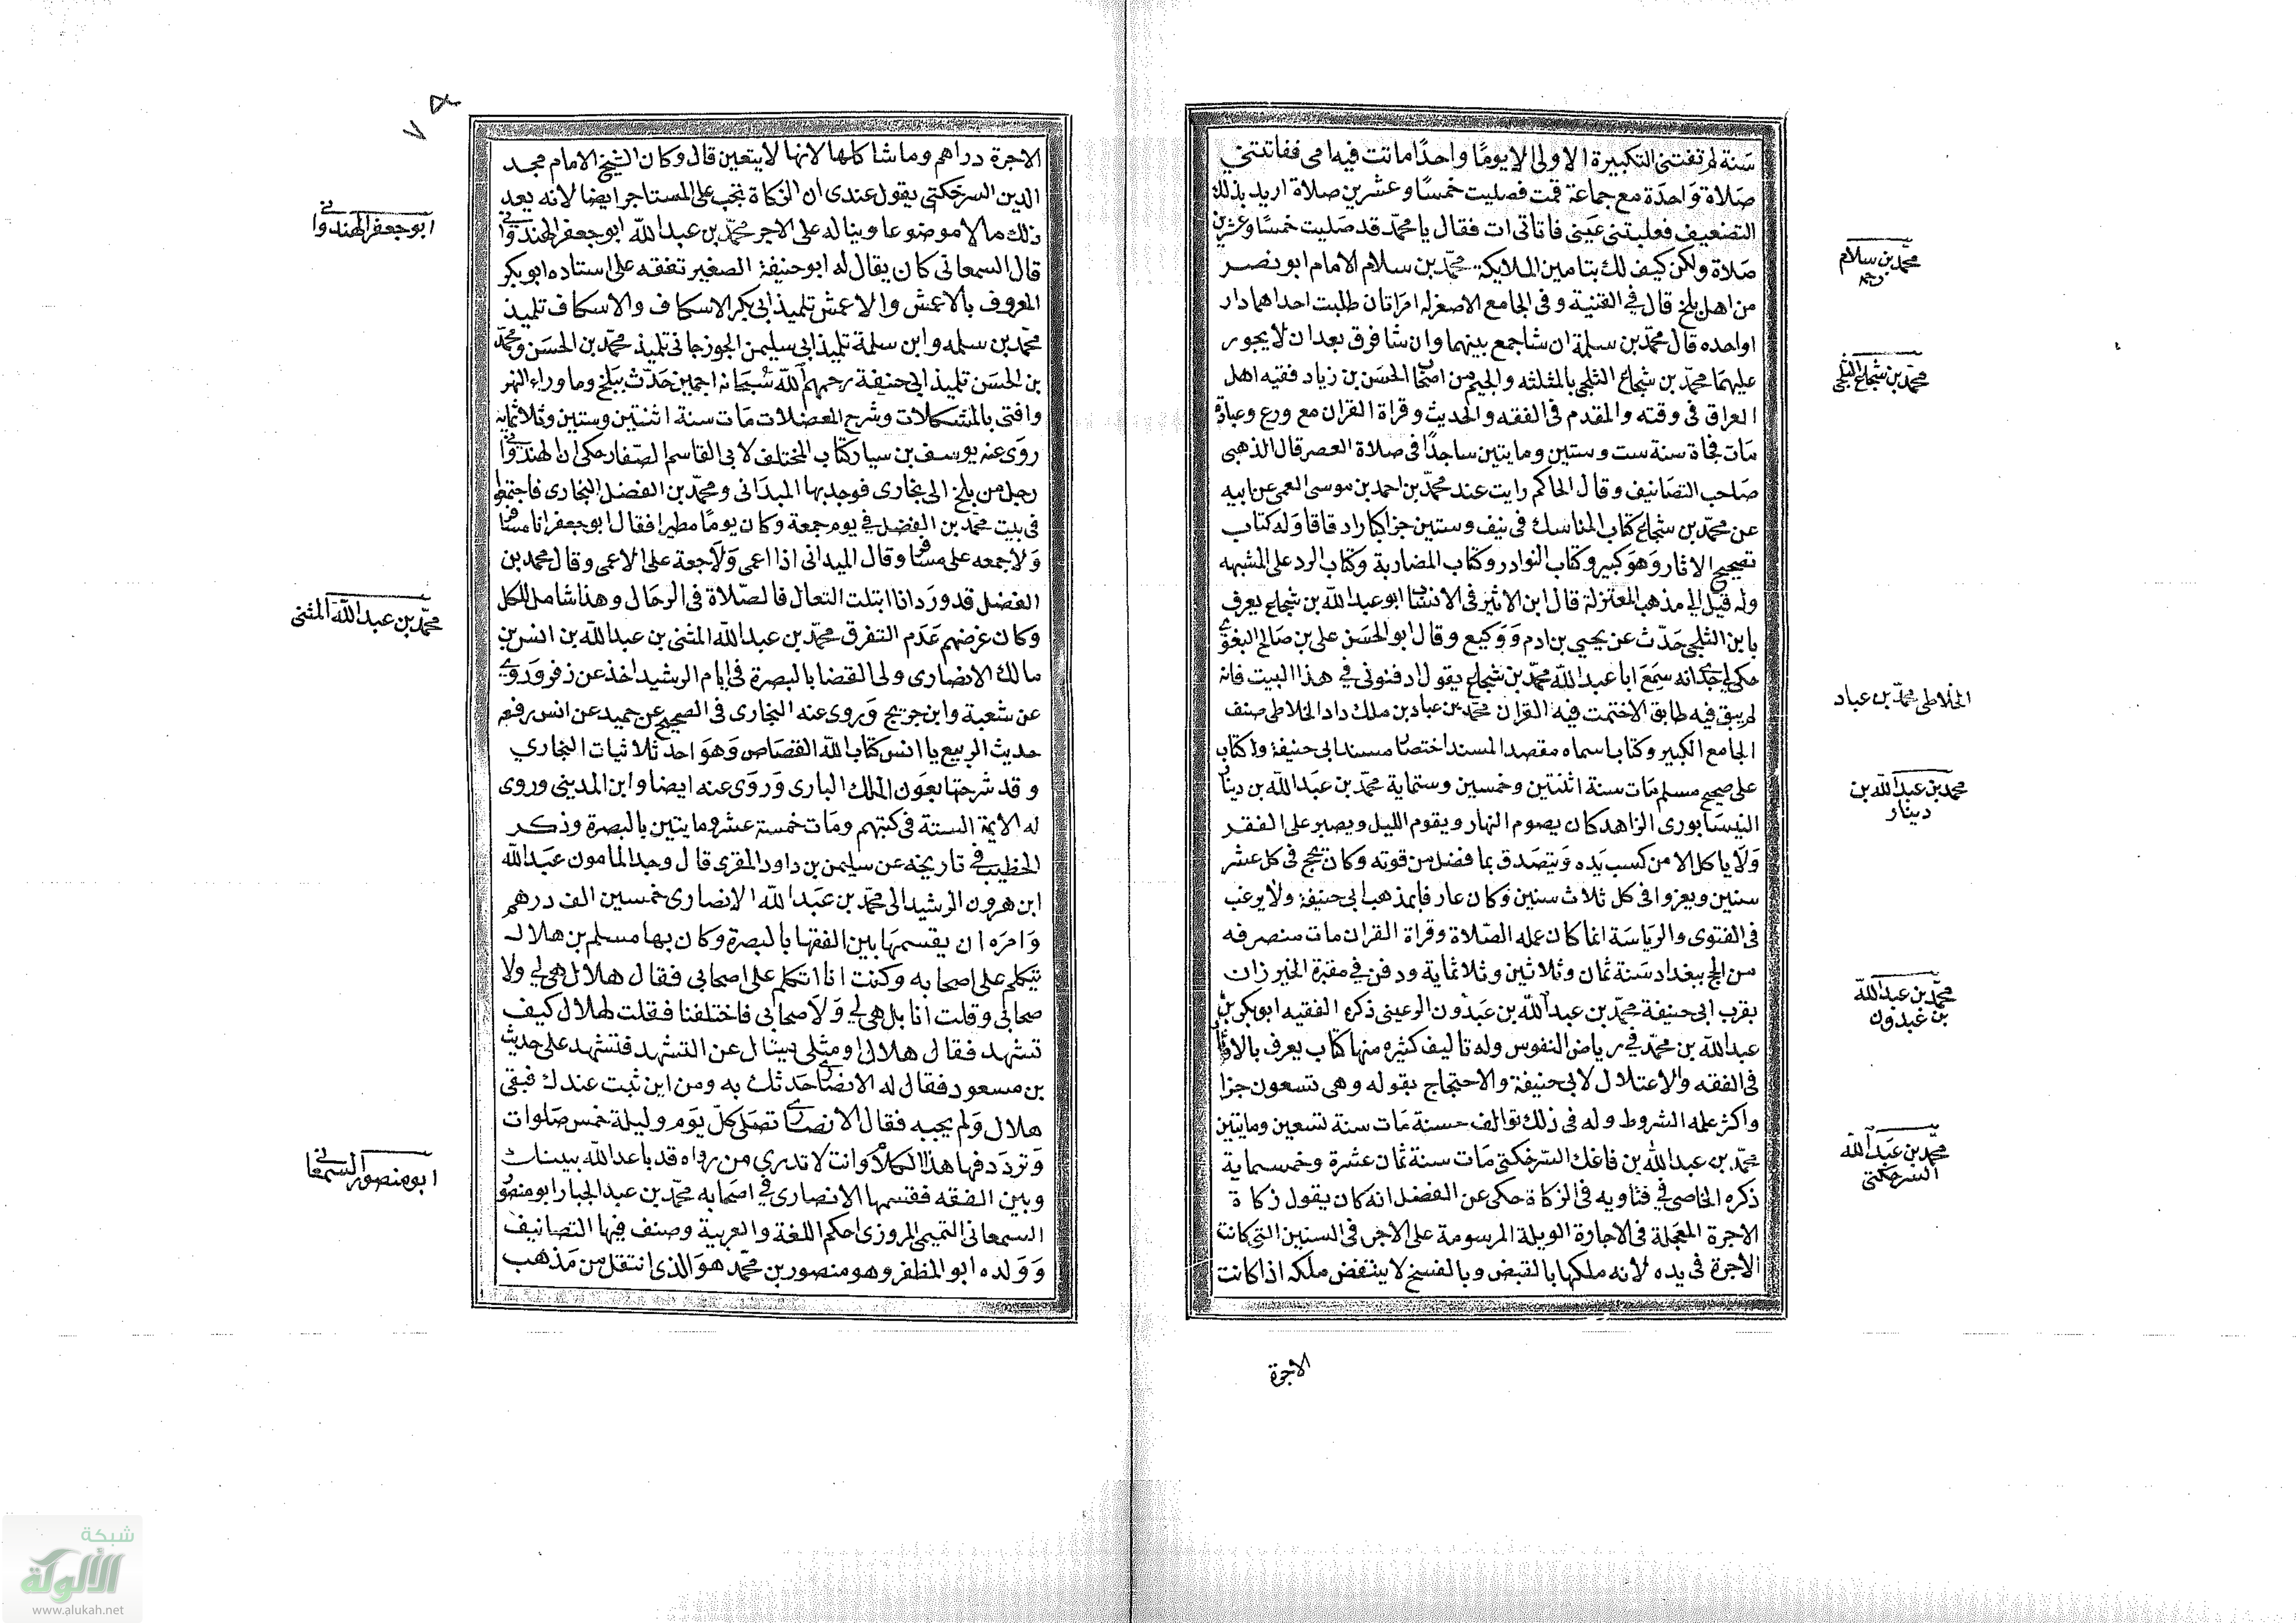 سنة لم تفتنى التكبيرة الاولى الا يومًا واحدًا ماتت فيه امى ففاتتنى
صلاة واحدة مع جماعة قمت فصليت خمسًا وعشرين صلاة اريد بذلك
التضعيف فغلبتنى عينى فاتانى ات فقال يا محمد قد صليت خمسًا وعشرين
صلاة ولكن كيف لك بتامين الملايكة محمد بن سلام الامام ابو نصر
من اهل بلخ قال فى القنية وفى الجامع الاصغر له امراتان طلبت احداهما دار
او احده قال محمد بن سلمة ان شا جمع بينهما وان شا فرق بعد ان لا يجور
عليهما محمد بن شجاع الثلجى بالمثلثه والجيم من اصحاب الحسن بن زياد فقيه اهل
العراق فى وقته والمقدم فى الفقه والحديث وقراة القران مع ورع وعبادة
مات فجاة سنة ست وستين ومايتين ساجدًا فى صلاة العصر قال الذهبى
صاحب التصانيف وقال الحاكم رايت عند محمد بن احمد بن موسى العمى عن ابيه
عن محمد بن شجاع كتاب المناسك فى نيف وستين جزا كبارا دقاقا وله كتاب
تصحيح الاثار وهو كبير وكتاب النوادر وكتاب المضاربة وكتاب الرد على المشبهه
وله قيل الى مذهب المعتزلة قال ابن الاثير فى الانساب ابو عبد الله بن شجاع يعرف
بابن الثلجى حدث عن يحيى بن ادم ووكيع وقال ابو الحسن على بن صالح البغوى
حكى لى جدى انه سمع ابا عبد الله محمد بن شجاع يقول ادفنونى فى هذا البيت فانه
لم يبق فيه طابق الا ختمت فيه القران محمد بن عباد بن ملك داد الخلاطى صنف
الجامع الكبير وكتابا سماه مقصد المسند اختصار مسند ابى حنيفة وله كتاب
على صحيح مسلم مات سنة اثنتين وخمسين وستماية محمد بن عبد الله بن دينار
النيسابورى الزاهد كان يصوم النهار ويقوم الليل ويصبر على الفقر
ولا ياكل الا من كسب يده ويتصدق بما فضل من قوته وكان يحج فى كل عشر
سنين ويغزوا فى كل ثلاث سنين وكان عارفا بمذهب ابى حنيفة ولا يرغب
فى الفتوى والرياسة انما كان عمله الصلاة وقراة القران مات منصرفه
من الحج ببغداد سنة ثمان وثلاثين وثلاثماية ودفن فى مقبرة الخيرزان
بقرب ابى حنيفة محمد بن عبد الله بن عبدون الرعينى ذكره الفقيه ابو بكر بن
عبد الله بن محمد فى رياض النفوس وله تاليف كثيره منها كتاب يعرف بالاثار
فى الفقه والاعتلال لابى حنيفة والاحتجاج بقوله وهى تسعون جزا
واكثر علمه الشروط وله فى ذلك تواليف حسنة مات سنة تسعين ومايتين
محمد بن عبد الله بن فاعك السرخكتى مات سنة ثمان عشرة وخمسماية
ذكره الخاصى فى فتاويه فى الزكاة حكى عن الفضل انه كان يقول زكاة
الاجرة المعجلة فى الاجارة الويلة المرسومة على الاجر فى السنين التى كانت
الاجرة فى يده لانه ملكها بالقبض وبالفسخ لا ينتقض ملكه اذا كانت
الاجرة
محمد بن سلام
محمد بن شجاع الثلجى
الخلاطى محمد بن عباد
محمد بن عبد الله بن
دينار
محمد بن عبد الله
بن عبدون
محمد بن عبد الله
السرخكتى
الاجرة دراهم وما شاكلها لانها لا يتعين قال وكان الشيخ الامام مجد
الدين السرخكتى يقول عندى ان الزكاة تجب على المستاجر ايضا لانه يعد
ذلك مالا موضوعا ويناله على الاجر محمد بن عبد الله ابو جعفر الهندوانى
قال السمعانى كان يقال له ابو حنيفة الصغير تفقه على استاده ابو بكر
المعروف بالاعمش والاعمش تلميذ ابى بكر الاسكاف والاسكاف تلميذ
محمد بن سلمه وابن سلمة تلميذ ابى سليمن الجوزجانى تلميذ محمد بن الحسن ومحمد
بن الحسن تلميذ ابى حنيفة رحمهم الله سبحانه اجمعين حدث ببلخ وما وراء النهر
وافتى بالمشكلات وشرح المعضلات مات سنة اثنتين وستين وثلاثمايه
روى عنه يوسف بن سيار كتاب المختلف لابى القاسم الصفار حكى ان الهندوانى
رحل من بلخ الى بخارى فوجد بها الميدانى ومحمد بن الفضل البخارى فاجتمعوا
فى بيت محمد بن الفضل فى يوم جمعة وكان يومًا مطيرا فقال ابو جعفر انا مسافر
ولا جمعه على مسافر وقال الميدانى اذا اعمى ولا جعة على الاعمى وقال محمد بن
الفضل قد ورد اذا ابتلت النعال فالصلاة فى الرحال وهذا شامل للكل
وكان غرضهم عدم التفرق محمد بن عبد الله المثنى بن عبد الله بن انس بن
مالك الانصارى ولى القضا بالبصرة فى ايام الرشيد اخذ عن زفر وروى
عن شعبة وابن جريج وروى عنه البخارى فى الصحيح عن حميد عن انس رفعه
حديث الربيع يا انس كتاب الله القصاص وهو احد ثلاثيات البخارى
وقد شرحتها بعون الملك البارى وروى عنه ايضا وابن المدينى وروى
له الايمة الستة فى كتبهم ومات خمسة عشر ومايتين بالبصرة وذكر
الخطيب فى تاريخه عن سليمن بن داود المقرى قال وجه المامون عبد الله
ابن هرون الرشيد الى محمد بن عبد الله الانصارى خمسين الف درهم
وامره ان يقسمها بين الفقها بالبصرة وكان بها مسلم بن هلال
يتكلم على اصحابه وكنت انا اتكلم على اصحابى فقال هلال هى لى ولا
صحابى وقلت انا بل هى لى ولاصحابى فاختلفنا فقلت لهلال كيف
تشهد فقال هلال او مثلى يسال عن التشهد فتشهد على حديث
بن مسعود فقال له الانصارى حدثك به ومن اين ثبت عندك فبقى
هلال ولم يجبه فقال الانصارى تصلى كل يوم وليلة خمس صلوات
وتردد فيها هذا الكلام وانت لا تدرى من رواه قد باعد الله بينك
وبين الفقه فقسمها الانصارى فى اصحابه محمد بن عبد الجبار ابو منصور
السمعانى التميمى المروزى احكم اللغة والعربية وصنف فيها التصانيف
وولده ابو المظفر وهو منصور بن محمد هو الذى انتقل من مذهب
ابو جعفر الهندوانى
محمد بن عبد الله المثنى
ابو منصور السمعانى
شبكة
الألوكة
www.alukah.net